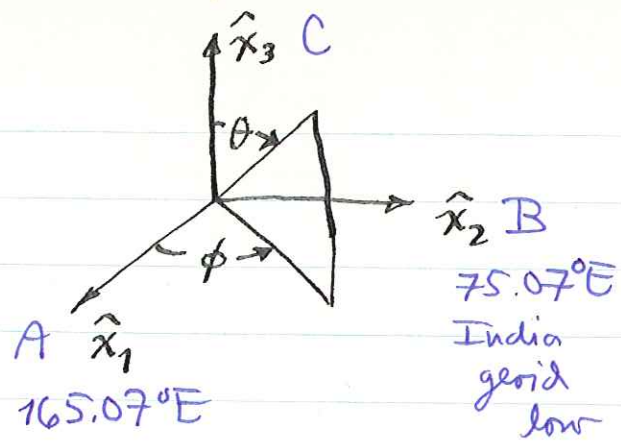 x̂₃ C
θ
x̂₂ B
ϕ
75.07°E
India
geoid
low
A x̂₁
165.07°E